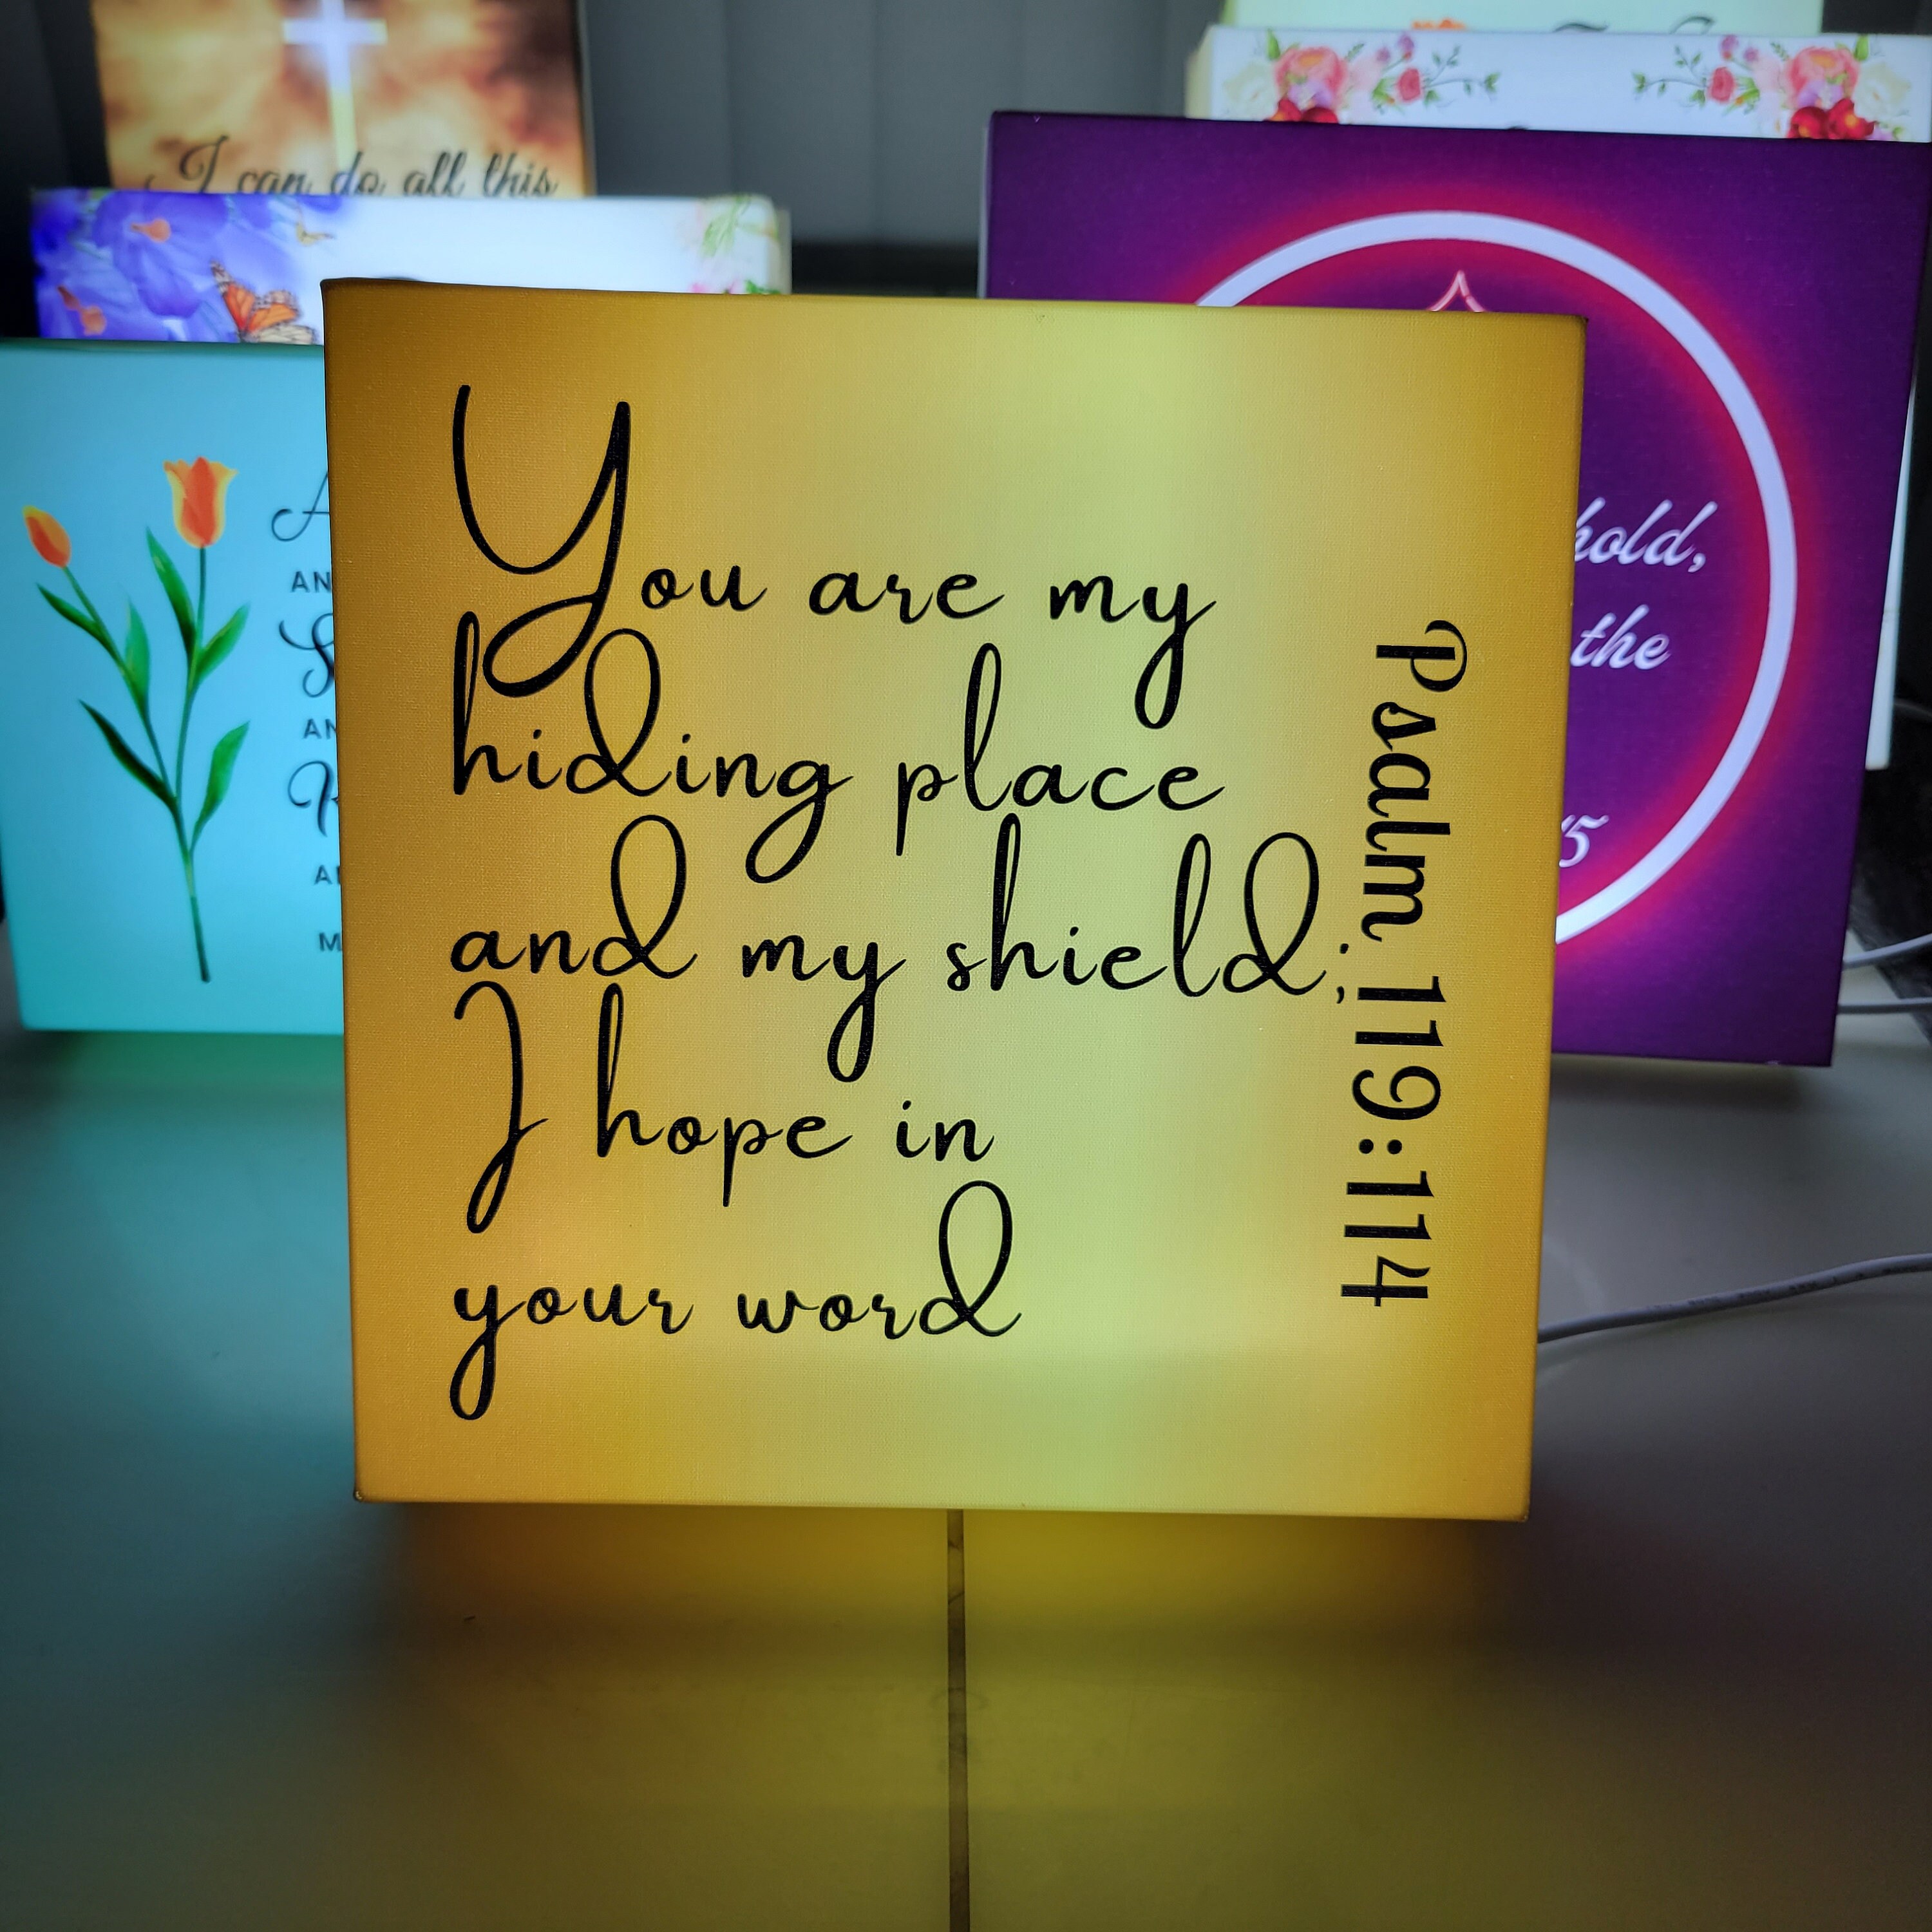 You are my
hiding place
and my shield;
I hope in
your word
Psalm 119:114
I can do all this
hold,
the